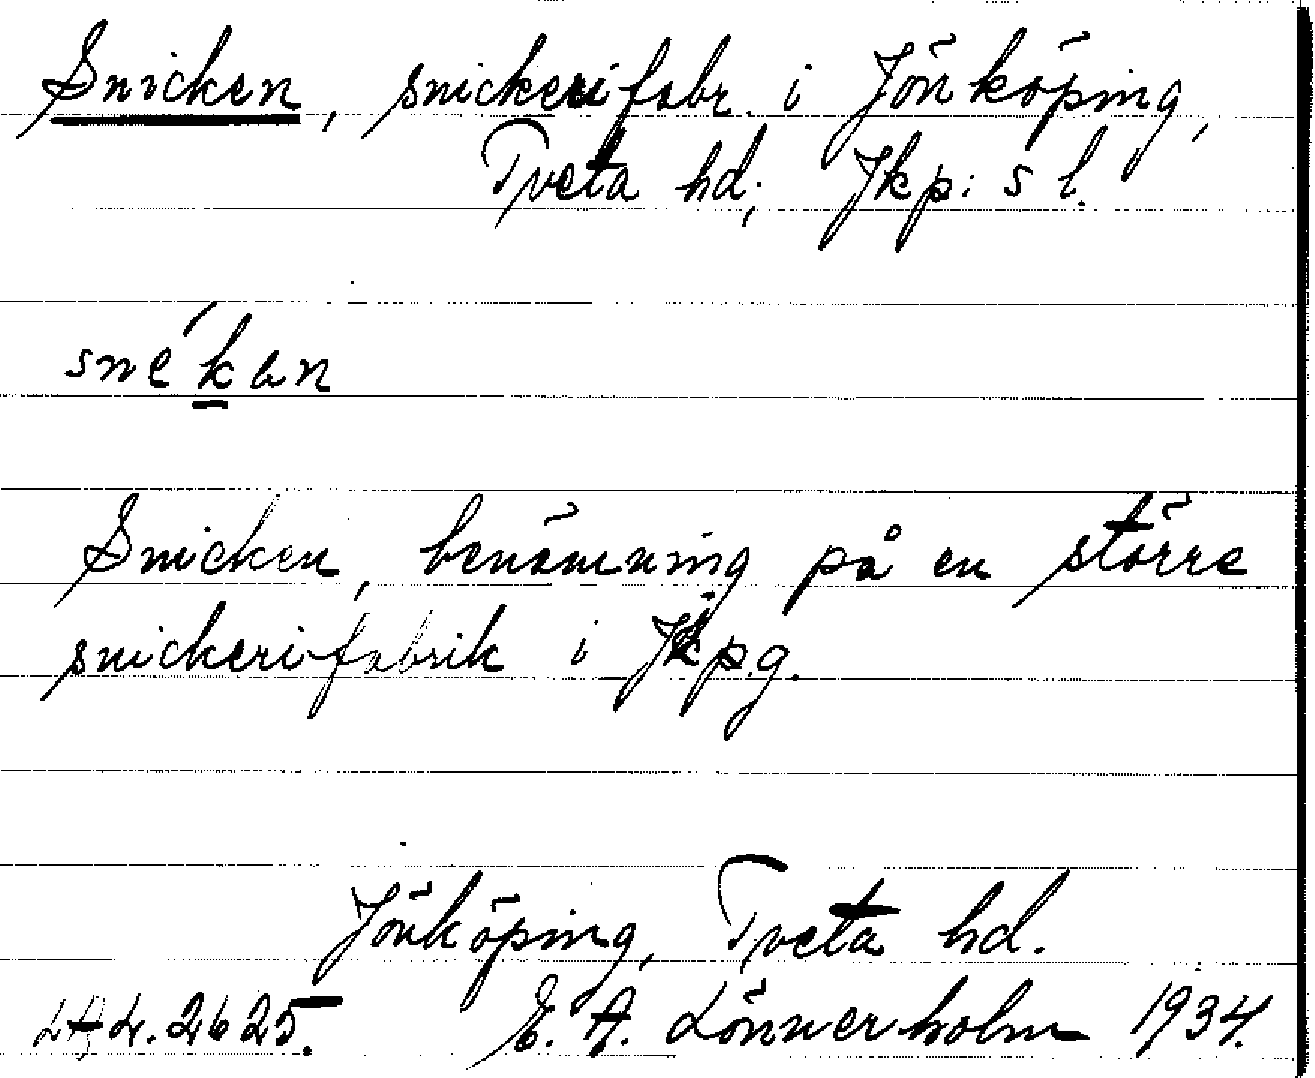 Snicken, snickerifabr. i Jönköping,
Tveta hd; Jkp: s l.
Snicken, benämning på en större
snickerifabrik i Jkpg.
Jönköping, Tveta hd.
2625. E. A. Lönnerholm 1934.